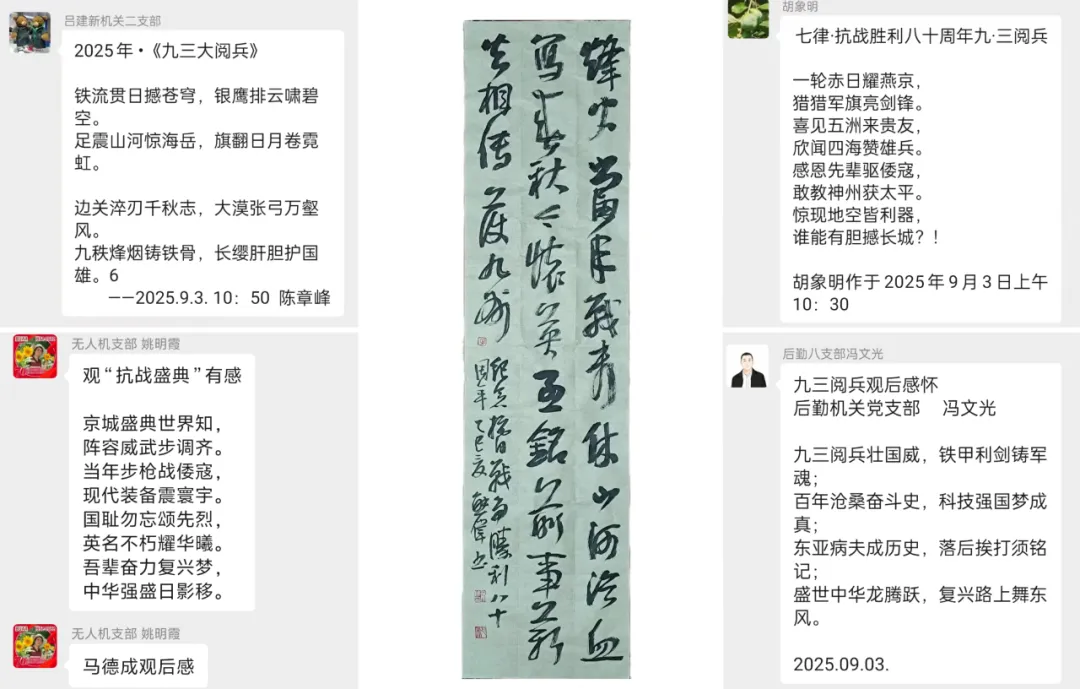 吕建新机关二支部
2025年·《九三大阅兵》
铁流贯日撼苍穹，银鹰排云啸碧
空。
足震山河惊海岳，旗翻日月卷霓
虹。
边关淬刃千秋志，大漠张弓万壑
风。
九秩烽烟铸铁骨，长缨肝胆护国
雄。6
——2025.9.3. 10：50 陈章峰
无人机支部 姚明霞
观“抗战盛典”有感
京城盛典世界知，
阵容威武步调齐。
当年步枪战倭寇，
现代装备震寰宇。
国耻勿忘颂先烈，
英名不朽耀华曦。
吾辈奋力复兴梦，
中华强盛日影移。
无人机支部 姚明霞
马德成观后感
烽火當年戰休山河泣血
寫春秋懷英銘前事薪
火相傳九州
紀念抗日戰爭勝利八十
周年乙巳夏書
胡象明
七律·抗战胜利八十周年九·三阅兵
一轮赤日耀燕京，
猎猎军旗亮剑锋。
喜见五洲来贵友，
欣闻四海赞雄兵。
感恩先辈驱倭寇，
敢教神州获太平。
惊现地空皆利器，
谁能有胆撼长城？！
胡象明作于2025年9月3日上午
10：30
后勤八支部冯文光
九三阅兵观后感怀
后勤机关党支部 冯文光
九三阅兵壮国威，铁甲利剑铸军
魂；
百年沧桑奋斗史，科技强国梦成
真；
东亚病夫成历史，落后挨打须铭
记；
盛世中华龙腾跃，复兴路上舞东
风。
2025.09.03.